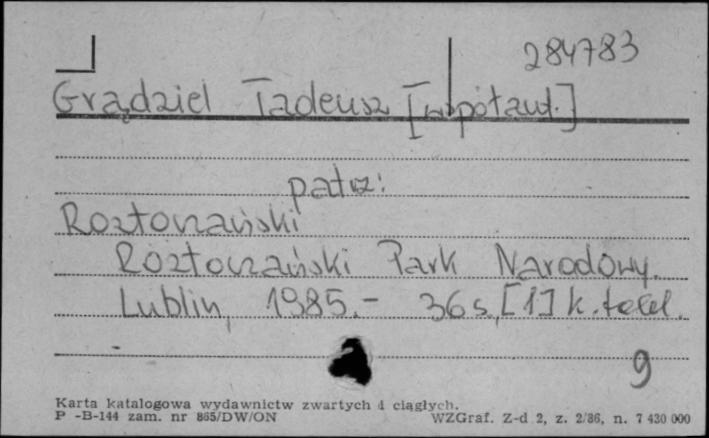 284783
Grądziel Tadeusz [współaut.]
patrz:
Roztoczański
Roztoczański Park Narodowy.
Lublin, 1985.- 36 s., [1] k. tabl.
9
Karta katalogowa wydawnictw zwartych i ciągłych.
P -B-144 zam. nr 865/DW/ON WZGraf. Z-d 2, z. 2/86, n. 7 430 000